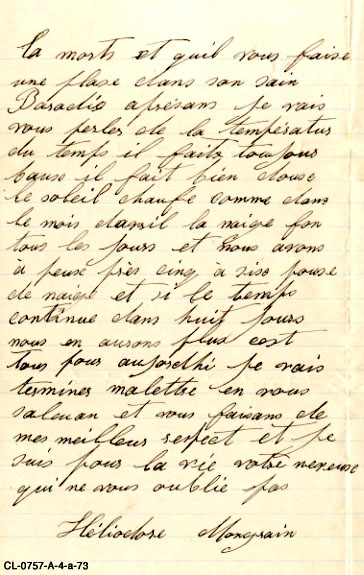 la morts et quil vous faise
une plase dans son sain
Baradis aprésans je vais
vous perler de la températur
du temps il faits toujour
bause il fait bien douse
le soleil chaufe comme dans
le mois davril la naige fon
tous les jours et nous avons
à peuse près cinq à sise pouse
de naige et si le temps
continue dans huit jours
nous en aurons plus cest
tous pour aujordhi je vais
terminer malettre en vous
saluan et vous faisans de
mes meilleur respect et je
suis pour la vie votre neveuse
qui ne vous oublie pas
Héliodore Mongrain
CL-0757-A-4-a-73